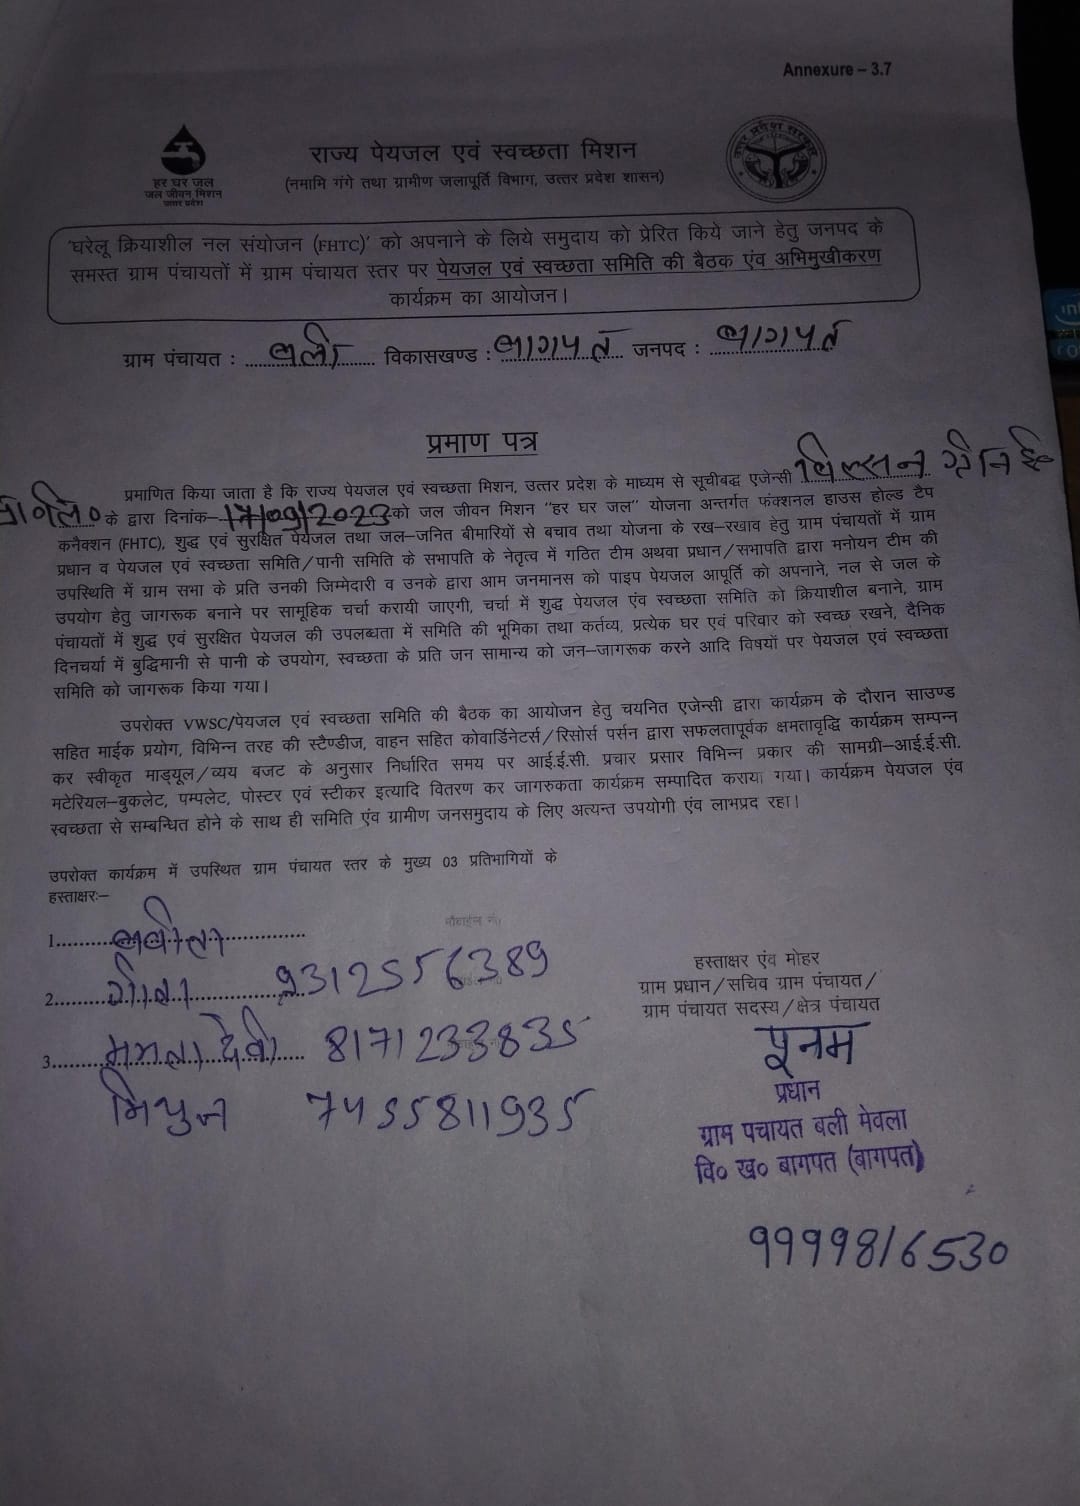 Annexure – 3.7
हर घर जल
जल जीवन मिशन
उत्तर प्रदेश
राज्य पेयजल एवं स्वच्छता मिशन
(नमामि गंगे तथा ग्रामीण जलापूर्ति विभाग, उत्तर प्रदेश शासन)
उत्तर प्रदेश सरकार
'घरेलू क्रियाशील नल संयोजन (FHTC)' को अपनाने के लिये समुदाय को प्रेरित किये जाने हेतु जनपद के
समस्त ग्राम पंचायतों में ग्राम पंचायत स्तर पर पेयजल एवं स्वच्छता समिति की बैठक एंव अभिमुखीकरण
कार्यक्रम का आयोजन।
ग्राम पंचायत : बली विकासखण्ड : बागपत जनपद : बागपत
प्रमाण पत्र
प्रमाणित किया जाता है कि राज्य पेयजल एवं स्वच्छता मिशन, उत्तर प्रदेश के माध्यम से सूचीबद्ध एजेन्सी विल्सन
प्रा० लि० के द्वारा दिनांक– 17/09/2023 को जल जीवन मिशन "हर घर जल" योजना अन्तर्गत फंक्शनल हाउस होल्ड टैप
कनैक्शन (FHTC), शुद्ध एवं सुरक्षित पेयजल तथा जल–जनित बीमारियों से बचाव तथा योजना के रख–रखाव हेतु ग्राम पंचायतों में ग्राम
प्रधान व पेयजल एवं स्वच्छता समिति/पानी समिति के सभापति के नेतृत्व में गठित टीम अथवा प्रधान/सभापति द्वारा मनोयन टीम की
उपस्थिति में ग्राम सभा के प्रति उनकी जिम्मेदारी व उनके द्वारा आम जनमानस को पाइप पेयजल आपूर्ति को अपनाने, नल से जल के
उपयोग हेतु जागरूक बनाने पर सामूहिक चर्चा करायी जाएगी, चर्चा में शुद्ध पेयजल एंव स्वच्छता समिति को क्रियाशील बनाने, ग्राम
पंचायतों में शुद्ध एवं सुरक्षित पेयजल की उपलब्धता में समिति की भूमिका तथा कर्तव्य, प्रत्येक घर एवं परिवार को स्वच्छ रखने, दैनिक
दिनचर्या में बुद्धिमानी से पानी के उपयोग, स्वच्छता के प्रति जन सामान्य को जन–जागरूक करने आदि विषयों पर पेयजल एवं स्वच्छता
समिति को जागरूक किया गया।
उपरोक्त VWSC/पेयजल एवं स्वच्छता समिति की बैठक का आयोजन हेतु चयनित एजेन्सी द्वारा कार्यक्रम के दौरान साउण्ड
सहित माईक प्रयोग, विभिन्न तरह की स्टैण्डीज, वाहन सहित कोवार्डिनेटर्स/रिसोर्स पर्सन द्वारा सफलतापूर्वक क्षमतावृद्धि कार्यक्रम सम्पन्न
कर स्वीकृत माड्यूल/व्यय बजट के अनुसार निर्धारित समय पर आई.ई.सी. प्रचार प्रसार विभिन्न प्रकार की सामग्री–आई.ई.सी.
मटेरियल–बुकलेट, पम्पलेट, पोस्टर एवं स्टीकर इत्यादि वितरण कर जागरुकता कार्यक्रम सम्पादित कराया गया। कार्यक्रम पेयजल एंव
स्वच्छता से सम्बन्धित होने के साथ ही समिति एंव ग्रामीण जनसमुदाय के लिए अत्यन्त उपयोगी एंव लाभप्रद रहा।
उपरोक्त कार्यक्रम में उपस्थित ग्राम पंचायत स्तर के मुख्य 03 प्रतिभागियों के
हस्ताक्षरः–
मोबाईल नं०
1. बबीता
2. गीता 9312556389
3. ममता देवी 8171233835
मिथुन 7455811935
हस्ताक्षर एंव मोहर
ग्राम प्रधान/सचिव ग्राम पंचायत/
ग्राम पंचायत सदस्य/क्षेत्र पंचायत
पूनम
प्रधान
ग्राम पंचायत बली मेवला
वि० ख० बागपत (बागपत)
9999816530